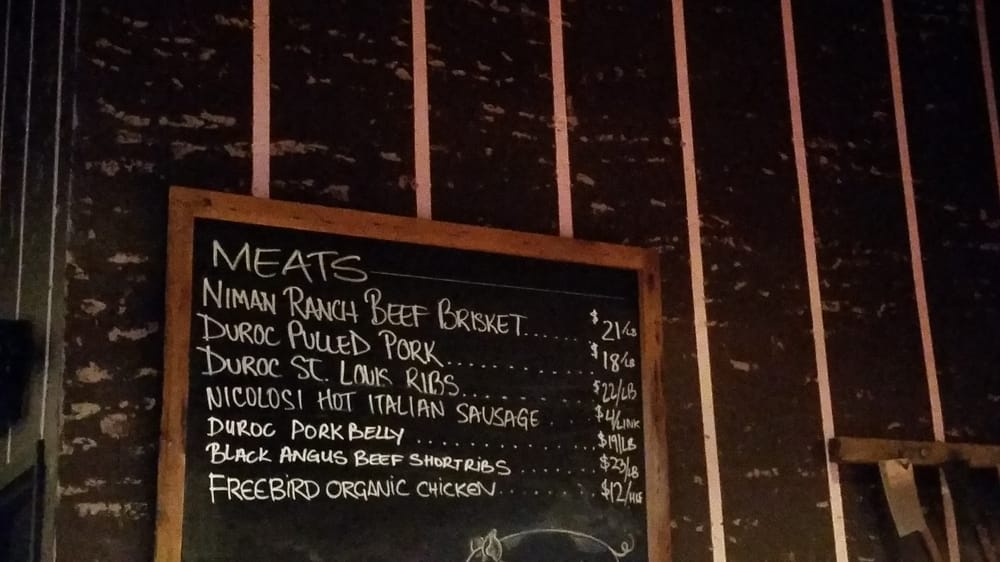 MEATS
NIMAN RANCH BEEF BRISKET...... $21/LB
DUROC PULLED PORK............ $18/LB
DUROC ST. LOUIS RIBS............ $22/LB
NICOLOSI HOT ITALIAN SAUSAGE .... $4/LINK
DUROC PORK BELLY ............... $19/LB
BLACK ANGUS BEEF SHORTRIBS ........ $23/LB
FREEBIRD ORGANIC CHICKEN......... $12/HLF